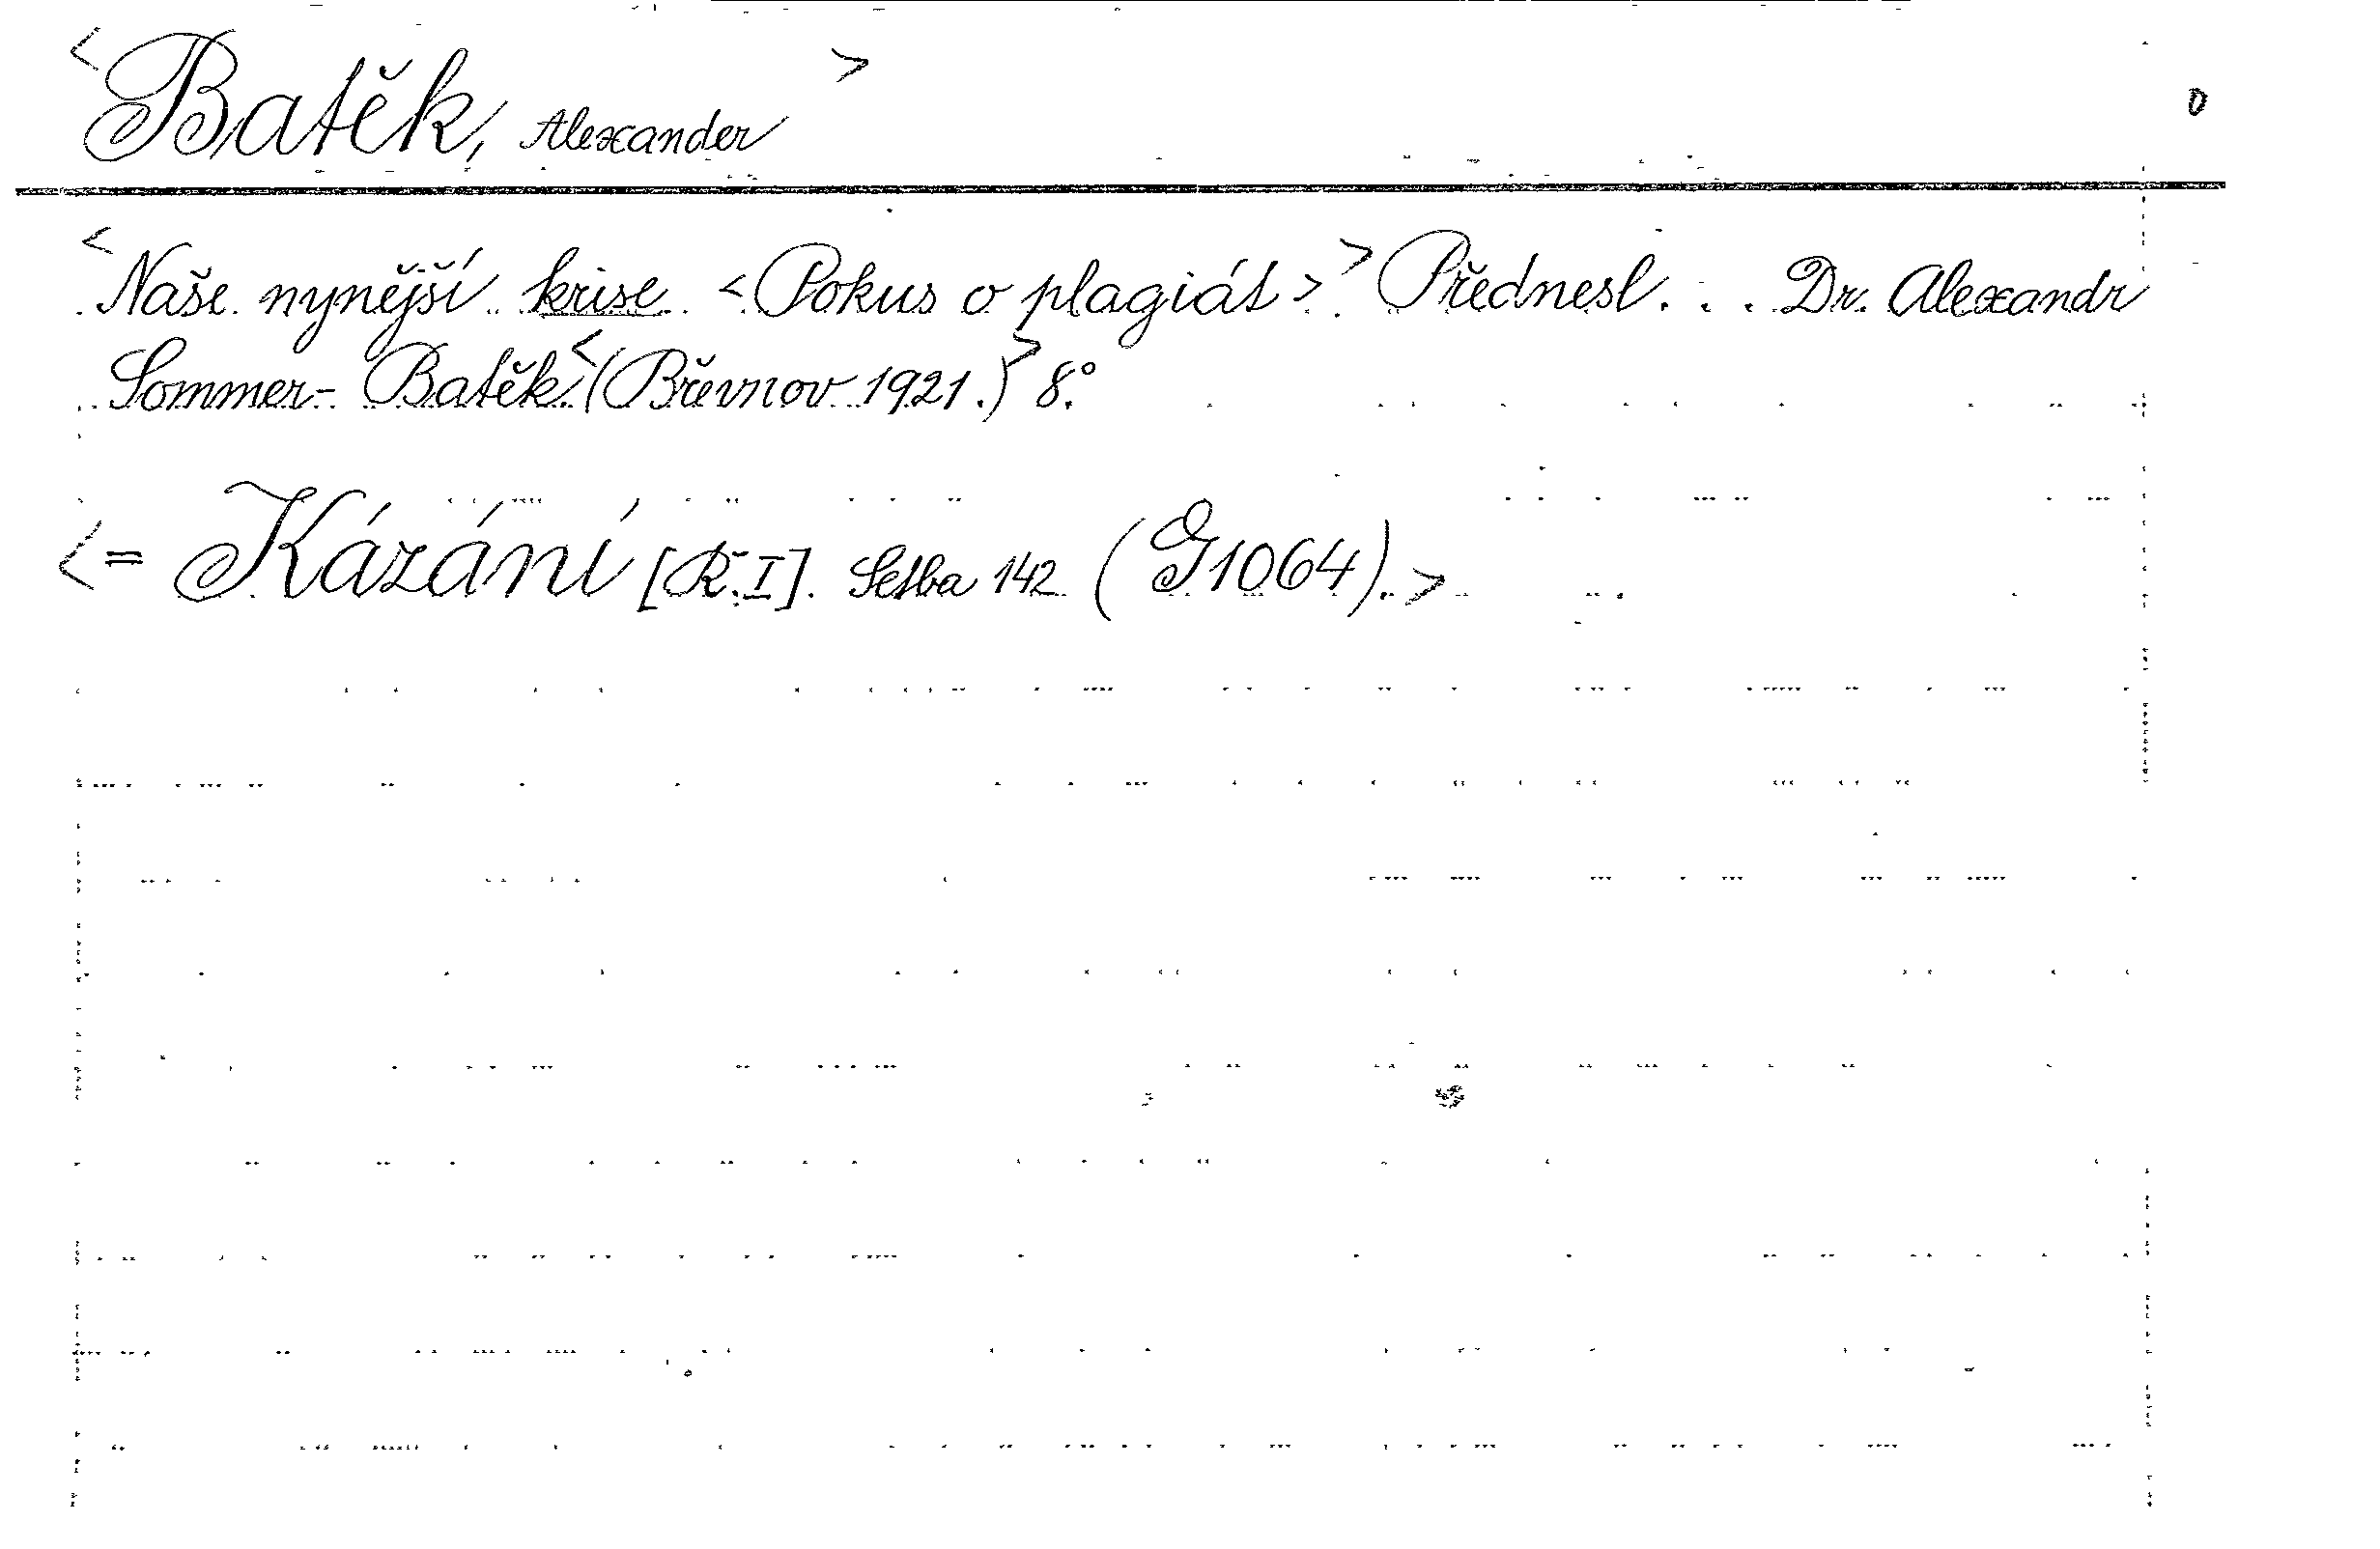 <Batěk, Alexander>
0
<Naše nynější krise <Pokus o plagiát>> Přednesl... Dr. Alexandr
Sommer-Batěk.<(Břevnov 1921.)> 8°.
<= Kázání [Ř.I]. Setba 142 (G1064).>